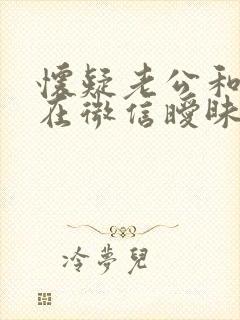 懷疑老公和
在微信曖昧
冷夢兒